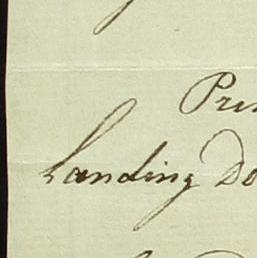 Pri
Landing Do